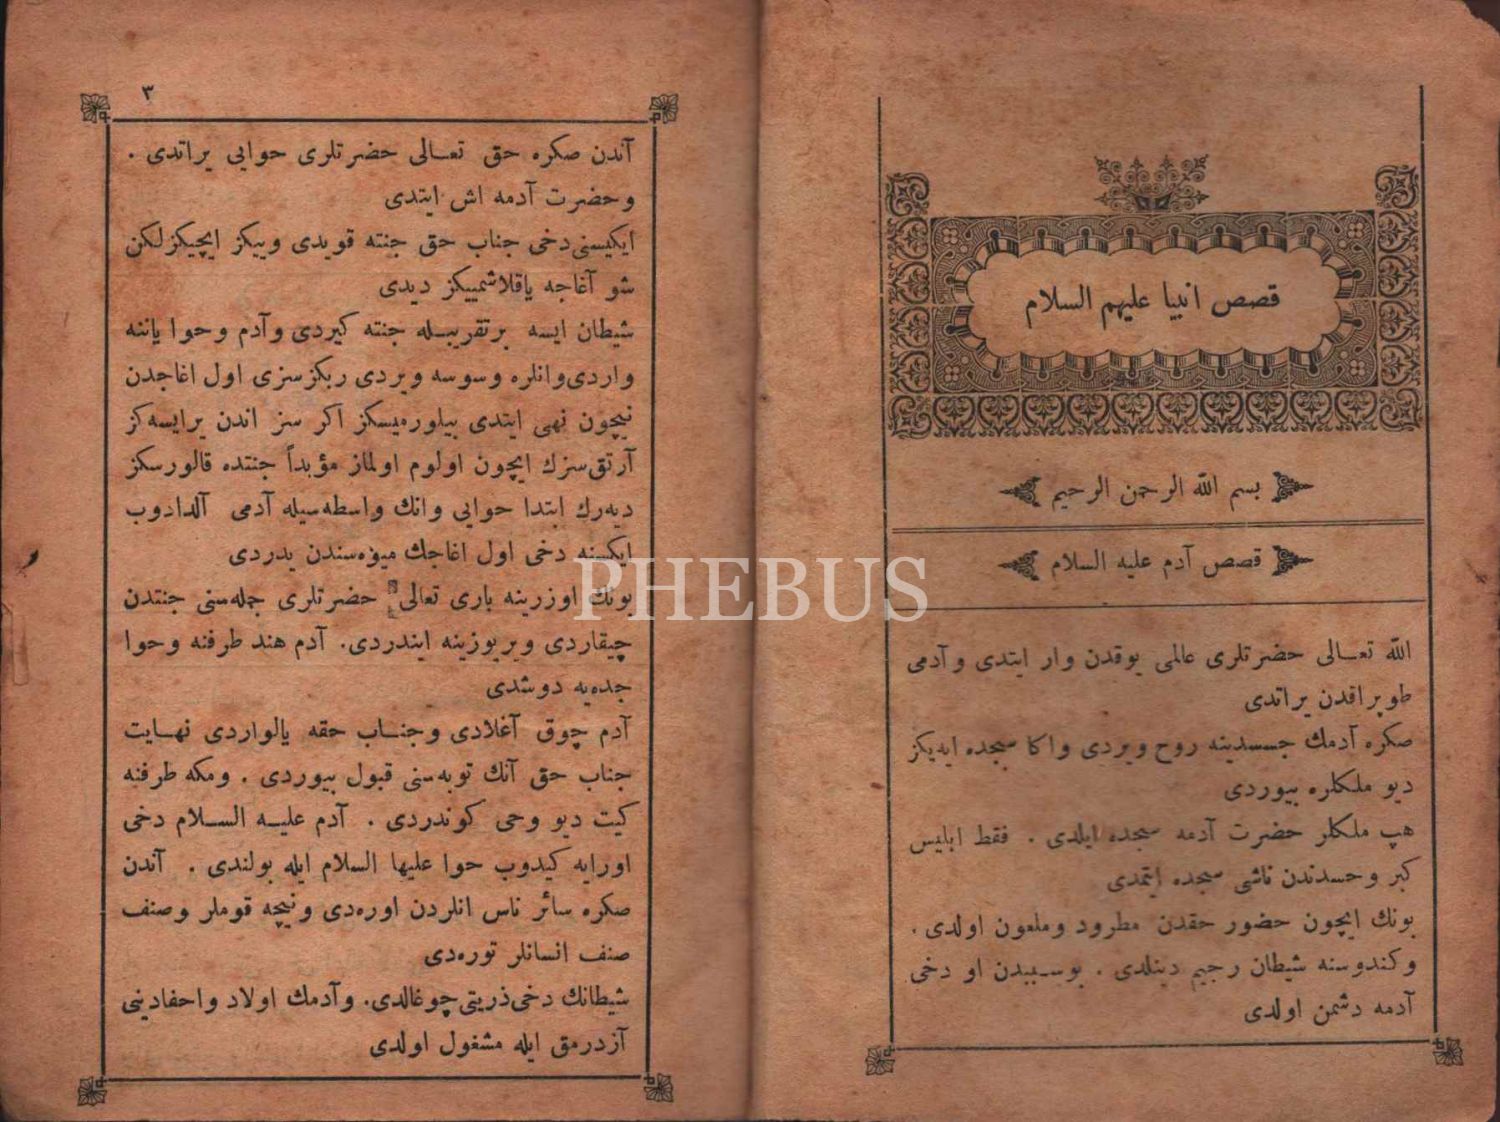 قصص انبيا عليهم السلام
بسم الله الرحمن الرحيم
قصص آدم عليه السلام
الله تعالى حضرتلرى عالمى يوقدن وار ايتدى و آدمى
طوپراقدن يراتدى
صكره آدمك جسدينه روح ويردى واكا سجده ايه‌يكز
ديو ملكلره بيوردى
هپ ملكلر حضرت آدمه سجده ايلدى . فقط ابليس
كبر وحسدندن ناشى سجده ايتمدى
بونك ايچون حضور حقدن مطرود وملعون اولدى .
وكندوسنه شيطان رجيم دينلدى . بوسببدن او دخى
آدمه دشمن اولدى
٣
آندن صكره حق تعالى حضرتلرى حوايى يراتدى .
وحضرت آدمه اش ايتدى
ايكيسنى دخى جناب حق جنته قويدى وييكز ايچيكز لكن
شو آغاجه ياقلاشمييكز ديدى
شيطان ايسه برتقريبله جنته كيردى وآدم وحوا ياننه
واردى وانلره وسوسه ويردى ربكز سزى اول اغاجدن
نيچون نهى ايتدى بيلورميسكز اكر سز اندن يرايسه‌كز
آرتق سزك ايچون اولوم اولماز مؤبداً جنتده قالورسكز
ديه‌رك ابتدا حوايى وانك واسطه‌سيله آدمى آلدادوب
ايكسنه دخى اول اغاجك ميوه‌سندن يدردى
بونك اوزرينه بارى تعالى حضرتلرى جمله‌سنى جنتدن
چيقاردى ويريوزينه ايندردى. آدم هند طرفنه وحوا
جده‌يه دوشدى
آدم چوق آغلادى وجناب حقه يالواردى نهايت
جناب حق آنك توبه‌سنى قبول بيوردى . ومكه طرفنه
كيت ديو وحى كوندردى . آدم عليه السلام دخى
اورايه كيدوب حوا عليها السلام ايله بولندى . آندن
صكره سائر ناس انلردن اوره‌دى ونيچه قوملر وصنف
صنف انسانلر توره‌دى
شيطانك دخى ذريتى چوغالدى. وآدمك اولاد واحفادينى
آزدرمق ايله مشغول اولدى
PHEBUS